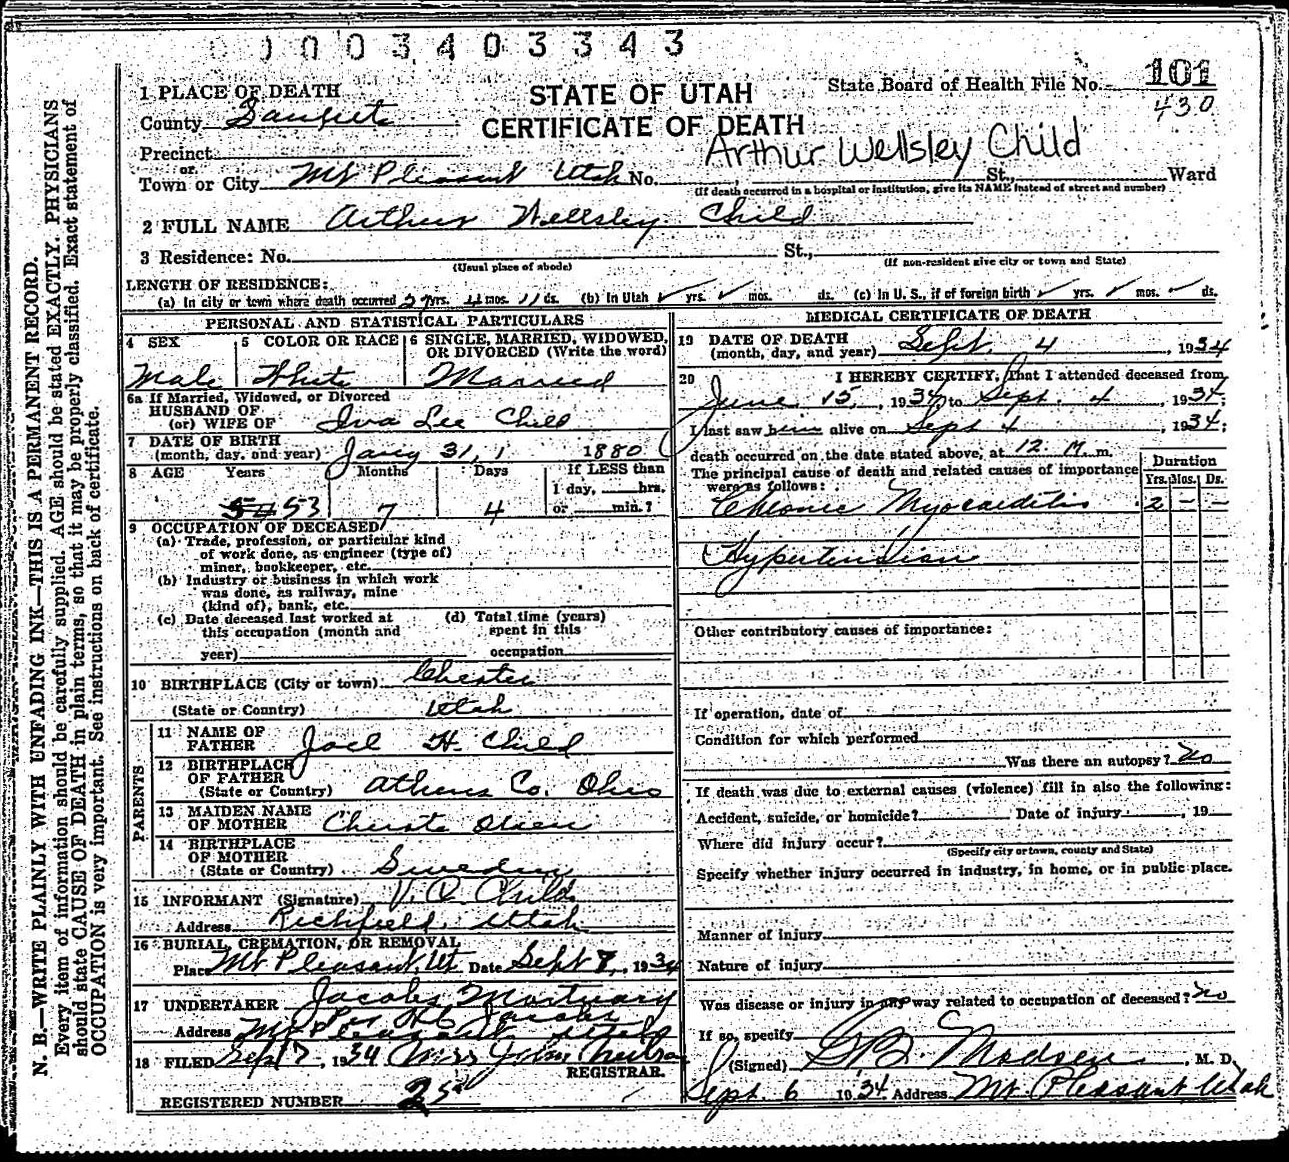 0 0 0 3 4 0 3 3 4 3
STATE OF UTAH
CERTIFICATE OF DEATH
State Board of Health File No. 101
430
1 PLACE OF DEATH
County Sanpete
Precinct
or
Town or City Mt Pleasant Utah No. St., Ward
Arthur Wellsley Child
(If death occurred in a hospital or institution, give its NAME instead of street and number)
2 FULL NAME Arthur Wellsley Child
3 Residence: No. St.,
(Usual place of abode) (If non-resident give city or town and State)
LENGTH OF RESIDENCE:
(a) In city or town where death occurred 27 yrs. 4 mos. 11 ds. (b) In Utah ✓ yrs. ✓ mos. ds. (c) In U. S., if of foreign birth ✓ yrs. ✓ mos. ds.
PERSONAL AND STATISTICAL PARTICULARS
4 SEX 5 COLOR OR RACE 6 SINGLE, MARRIED, WIDOWED,
OR DIVORCED (Write the word)
Male White Married
6a If Married, Widowed, or Divorced
HUSBAND OF
(or) WIFE OF Iva Lee Child
7 DATE OF BIRTH
(month, day, and year) Jany 31, 1880
8 AGE Years Months Days If LESS than
1 day, hrs.
54 53 7 4 or min.?
9 OCCUPATION OF DECEASED
(a) Trade, profession, or particular kind
of work done, as engineer (type of)
miner, bookkeeper, etc.
(b) Industry or business in which work
was done, as railway, mine
(kind of), bank, etc.
(c) Date deceased last worked at (d) Total time (years)
this occupation (month and spent in this
year) occupation
10 BIRTHPLACE (City or town) Chester
(State or Country) Utah
PARENTS
11 NAME OF
FATHER Joel H Child
12 BIRTHPLACE
OF FATHER
(State or Country) Athens Co. Ohio
13 MAIDEN NAME
OF MOTHER Olsen
14 BIRTHPLACE
OF MOTHER
(State or Country) Sweden
15 INFORMANT (Signature) V. C. Child
Address Richfield, Utah
16 BURIAL, CREMATION, OR REMOVAL
Place Mt Pleasant, Ut Date Sept 7, 1934
17 UNDERTAKER Jacobs Mortuary
Per Jacobs
Address Mt Pleasant Utah
18 FILED Sep 7, 1934 Mrs John
REGISTRAR.
REGISTERED NUMBER 25
MEDICAL CERTIFICATE OF DEATH
19 DATE OF DEATH
(month, day, and year) Sept. 4, 1934
20 I HEREBY CERTIFY, That I attended deceased from
June 15, 1934, to Sept. 4, 1934;
I last saw him alive on Sept 4, 1934;
death occurred on the date stated above, at 12. M. m.
The principal cause of death and related causes of importance
were as follows:
Duration
Yrs. Mos. Ds.
Chronic Myocarditis 2 — —
Hypertension
Other contributory causes of importance:
If operation, date of
Condition for which performed
Was there an autopsy? No
If death was due to external causes (violence) fill in also the following:
Accident, suicide, or homicide? Date of injury , 19
Where did injury occur?
(Specify city or town, county and State)
Specify whether injury occurred in industry, in home, or in public place.
Manner of injury
Nature of injury
Was disease or injury in any way related to occupation of deceased? No
If so, specify
(Signed) Madsen, M. D.
Sept. 6 1934 Address Mt Pleasant, Utah
N. B.—WRITE PLAINLY WITH UNFADING INK—THIS IS A PERMANENT RECORD.
Every item of information should be carefully supplied. AGE should be stated EXACTLY. PHYSICIANS
should state CAUSE OF DEATH in plain terms, so that it may be properly classified. Exact statement of
OCCUPATION is very important. See instructions on back of certificate.